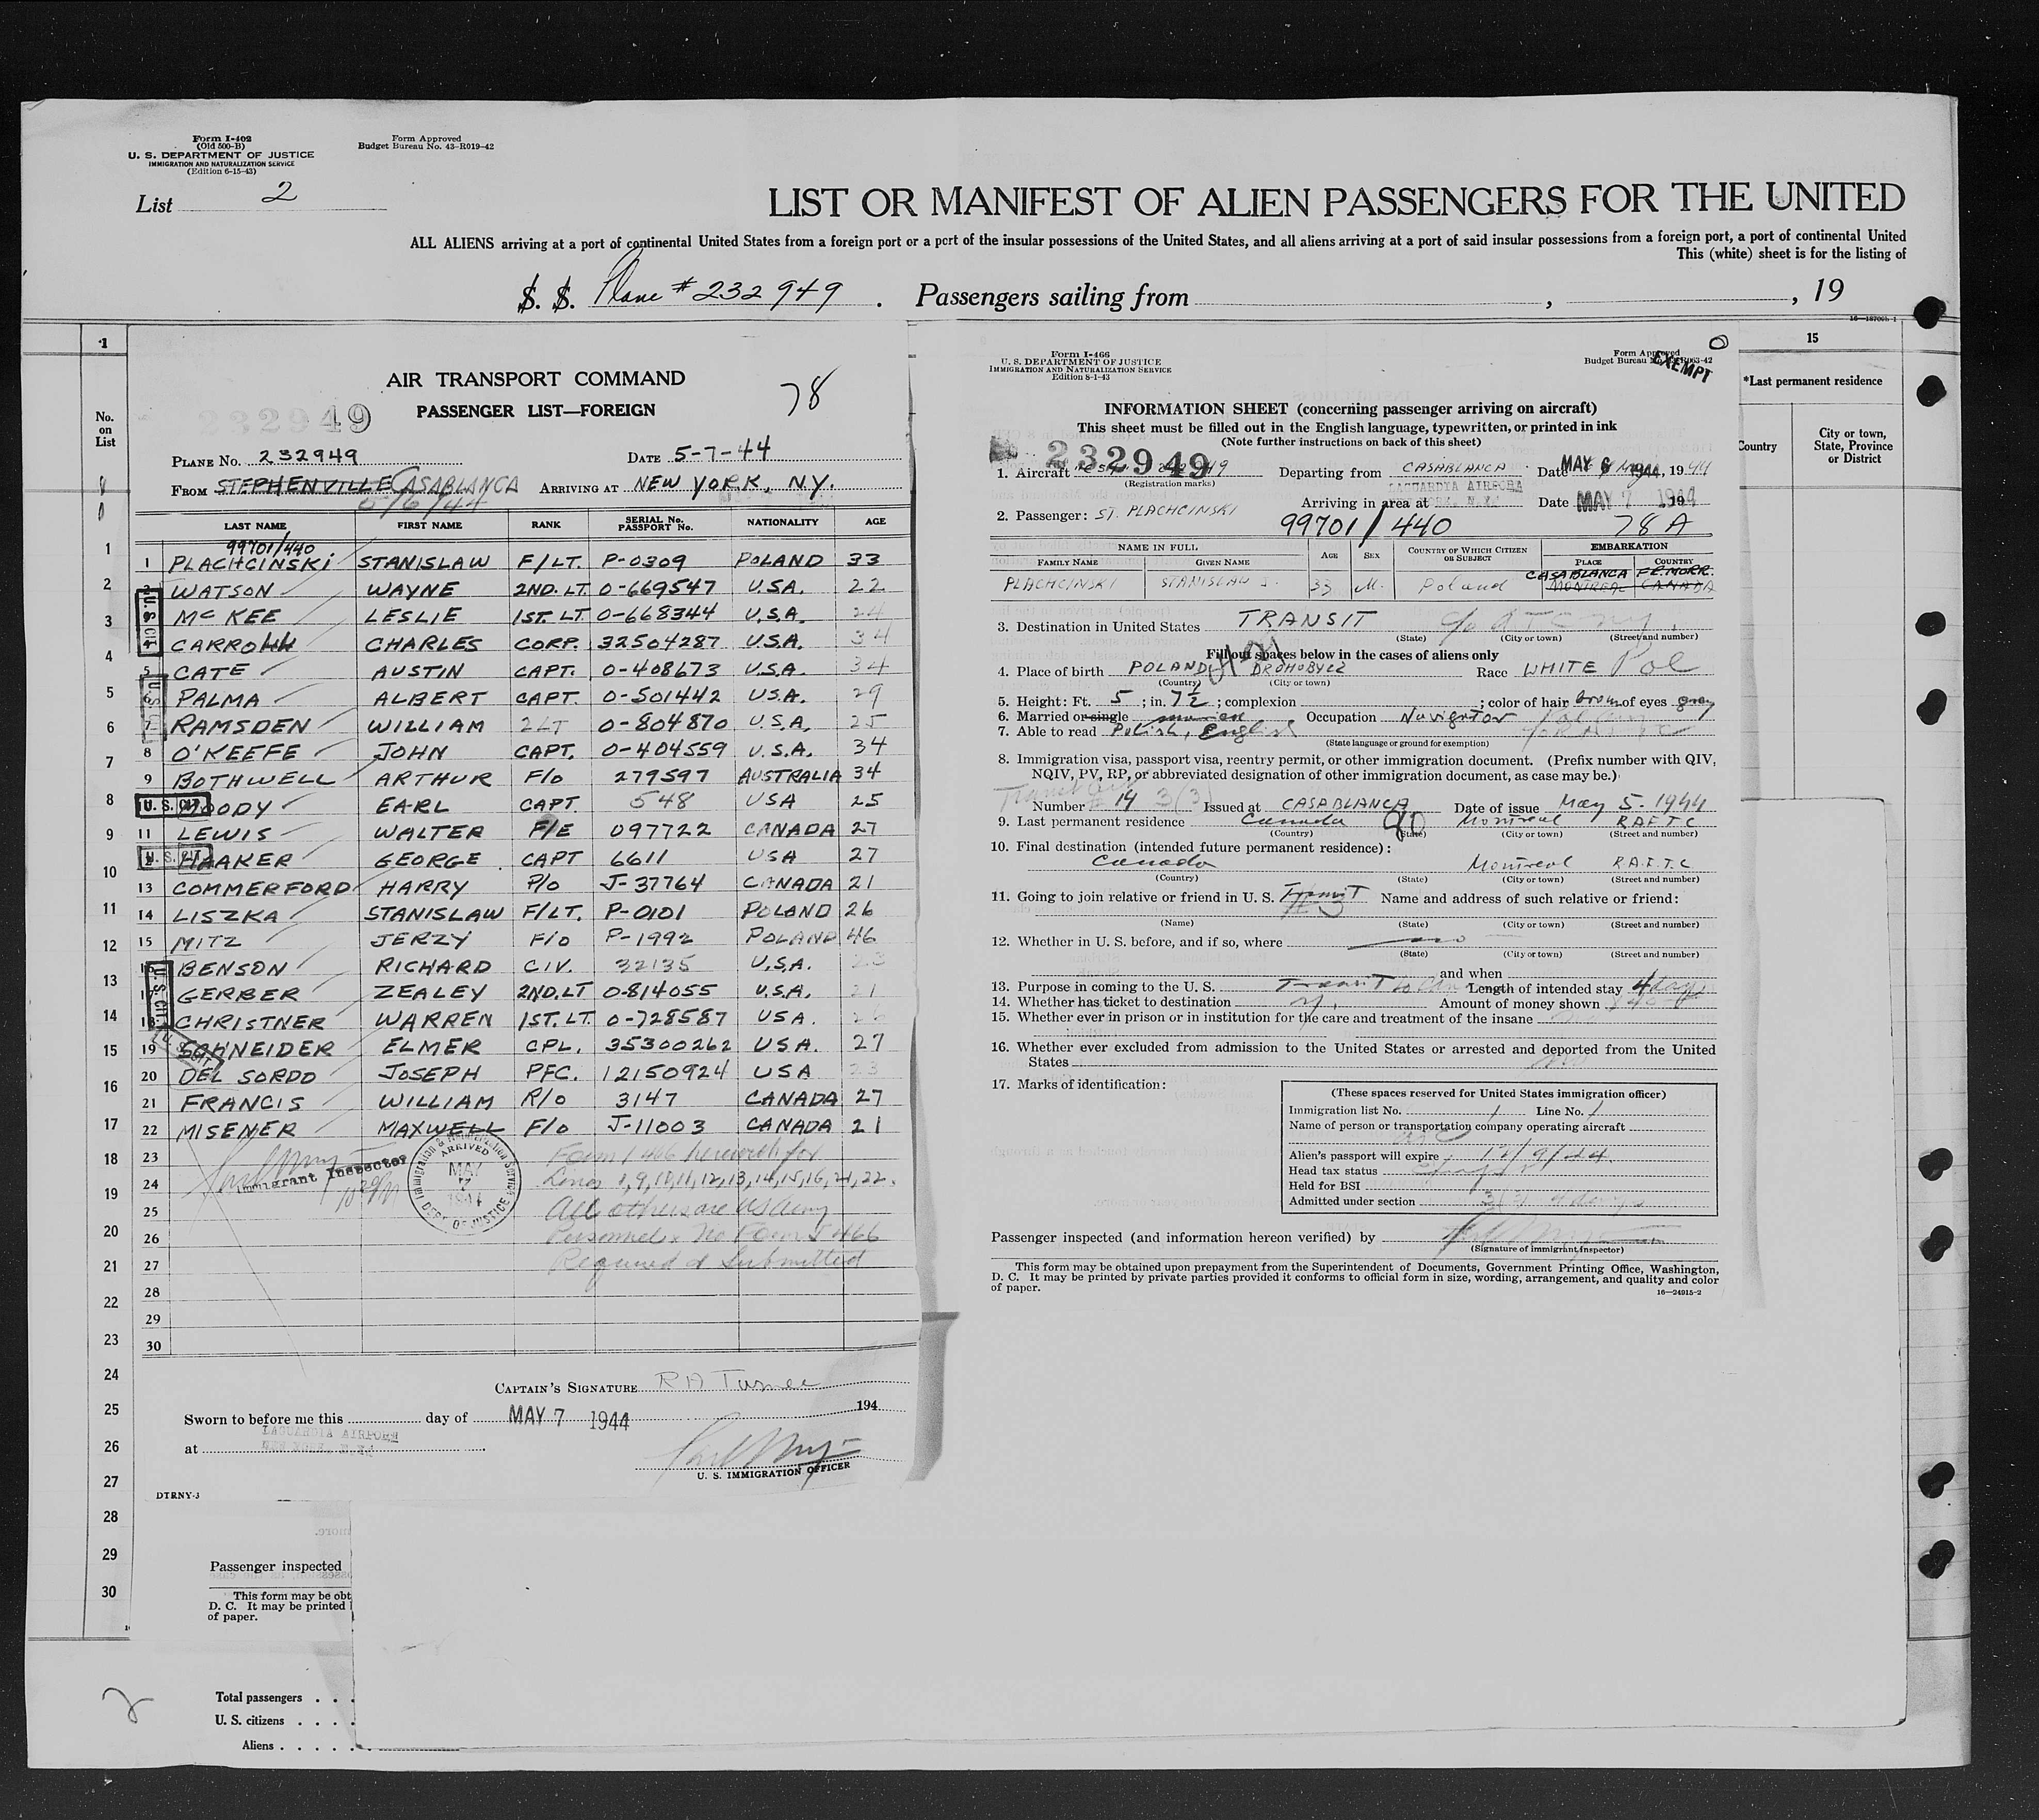 Form I-402
(Old 500-B)
U. S. DEPARTMENT OF JUSTICE
IMMIGRATION AND NATURALIZATION SERVICE
(Edition 6-15-43)
Form Approved
Budget Bureau No. 43-R019-42
List 2
LIST OR MANIFEST OF ALIEN PASSENGERS FOR THE UNITED
ALL ALIENS arriving at a port of continental United States from a foreign port or a port of the insular possessions of the United States, and all aliens arriving at a port of said insular possessions from a foreign port, a port of continental United
This (white) sheet is for the listing of
S. S. Plane # 232949 . Passengers sailing from , , 19
1
No. on List
AIR TRANSPORT COMMAND
78
PASSENGER LIST—FOREIGN
232949
PLANE No. 232949 DATE 5-7-44
FROM STEPHENVILLE CASABLANCA ARRIVING AT NEW YORK, N.Y.
5/6/44
LAST NAME FIRST NAME RANK SERIAL No. PASSPORT No. NATIONALITY AGE
99701/440
1 PLACHCINSKI STANISLAW F/LT. P-0309 POLAND 33
WATSON WAYNE 2ND. LT 0-669547 U.S.A. 22
McKEE LESLIE 1ST. LT 0-668344 U.S.A. 24
CARROLL CHARLES CORP. 32504287 U.S.A. 34
5 CATE AUSTIN CAPT. 0-408673 U.S.A. 34
6 PALMA ALBERT CAPT. 0-501442 U.S.A. 29
7 RAMSDEN WILLIAM 2LT 0-804870 U.S.A. 25
8 O'KEEFE JOHN CAPT. 0-404559 U.S.A. 34
9 BOTHWELL ARTHUR F/O 279597 AUSTRALIA 34
U. S. CIT. MOODY EARL CAPT. 548 USA 25
11 LEWIS WALTER F/E 097722 CANADA 27
U. S. CIT. HAAKER GEORGE CAPT 6611 USA 27
13 COMMERFORD HARRY P/O J-37764 CANADA 21
14 LISZKA STANISLAW F/LT. P-0101 POLAND 26
15 MITZ JERZY F/O P-1992 POLAND 46
16 BENSON RICHARD CIV. 32135 U.S.A. 23
17 GERBER ZEALEY 2ND.LT 0-814055 U.S.A. 21
18 CHRISTNER WARREN 1ST. LT. 0-728587 USA. 26
19 SCHNEIDER ELMER CPL. 35300262 U.S.A. 27
20 DEL SORDO JOSEPH PFC. 12150924 USA 23
21 FRANCIS WILLIAM R/O 3147 CANADA 27
22 MISENER MAXWELL F/O J-11003 CANADA 21
23 Form I 466 herewith for
24 Lines 1,9,10,11,12,13,14,15,16,21,22.
25 All others are US Army
26 Personnel & No Form I 466
27 Required or Submitted
28
29
30
Immigrant Inspector
Immigration & Naturalization Service
ARRIVED
MAY
7
1944
DEPT. OF JUSTICE
CAPTAIN'S SIGNATURE R A Turner
Sworn to before me this day of MAY 7 1944 194
at LAGUARDIA AIRPORT
U. S. IMMIGRATION OFFICER
DTRNY-3
1
2
3
4
5
6
7
8
9
10
11
12
13
14
15
16
17
18
19
20
21
22
23
24
25
26
27
28
29
30
Passenger inspected
This form may be obt
D. C. It may be printed
of paper.
Total passengers
U. S. citizens
Aliens
Form I-466
U. S. DEPARTMENT OF JUSTICE
IMMIGRATION AND NATURALIZATION SERVICE
Edition 8-1-43
Form Approved
Budget Bureau No. 43-R063-42
EXEMPT
INFORMATION SHEET (concerning passenger arriving on aircraft)
This sheet must be filled out in the English language, typewritten, or printed in ink
(Note further instructions on back of this sheet)
232949
1. Aircraft Departing from CASABLANCA Date MAY 6 1944, 1944
(Registration marks)
Arriving in area at LAGUARDIA AIRPORT Date MAY 7 1944
2. Passenger: ST. PLACHCINSKI 99701/440 78 A
NAME IN FULL AGE SEX COUNTRY OF WHICH CITIZEN OR SUBJECT EMBARKATION
FAMILY NAME GIVEN NAME PLACE COUNTRY
CASABLANCA FR.MORR.
PLACHCINSKI STANISLAW J. 33 M. Poland MONTREAL CANADA
3. Destination in United States TRANSIT
(State) (City or town) (Street and number)
Fill out spaces below in the cases of aliens only
4. Place of birth POLAND DROHOBYCZ Race WHITE Pol
(Country) (City or town)
5. Height: Ft. 5 ; in. 7½ ; complexion ; color of hair brown of eyes grey
6. Married or single married Occupation Navigator
7. Able to read Polish, English
(State language or ground for exemption)
8. Immigration visa, passport visa, reentry permit, or other immigration document. (Prefix number with QIV,
NQIV, PV, RP, or abbreviated designation of other immigration document, as case may be.)
Number 14 3(3) Issued at CASABLANCA Date of issue May 5. 1944
9. Last permanent residence Canada Montreal R.A.F.T.C
(Country) (State) (City or town) (Street and number)
10. Final destination (intended future permanent residence):
Canada Montreal R.A.F.T.C
(Country) (State) (City or town) (Street and number)
11. Going to join relative or friend in U. S. Transit Name and address of such relative or friend:
(Name) (State) (City or town) (Street and number)
12. Whether in U. S. before, and if so, where no
(State) (City or town) (Street and number)
and when
13. Purpose in coming to the U. S. Transit to Length of intended stay 4 days
14. Whether has ticket to destination Amount of money shown
15. Whether ever in prison or in institution for the care and treatment of the insane
16. Whether ever excluded from admission to the United States or arrested and deported from the United
States no
17. Marks of identification:
(These spaces reserved for United States immigration officer)
Immigration list No. 1 Line No. 1
Name of person or transportation company operating aircraft
Alien's passport will expire 12/9/44
Head tax status
Held for BSI
Admitted under section 3(3)
Passenger inspected (and information hereon verified) by
(Signature of immigrant inspector)
This form may be obtained upon prepayment from the Superintendent of Documents, Government Printing Office, Washington,
D. C. It may be printed by private parties provided it conforms to official form in size, wording, arrangement, and quality and color
of paper.
16—24915-2
15
*Last permanent residence
Country City or town, State, Province or District